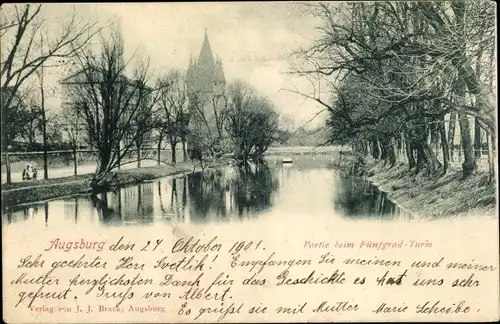 Augsburg den 24 Oktober 1901. Partie beim Fünfgrad-Turm
Sehr geehrter Herr Svetlik! Empfangen Sie meinen und meiner
Mutter herzlichsten Dank für das Geschickte es hat uns sehr
gefreut. Gruß von Albert.
Verlag von J. J. Brack, Augsburg Es grüßt sie mit Mutter Marie Scheibe.